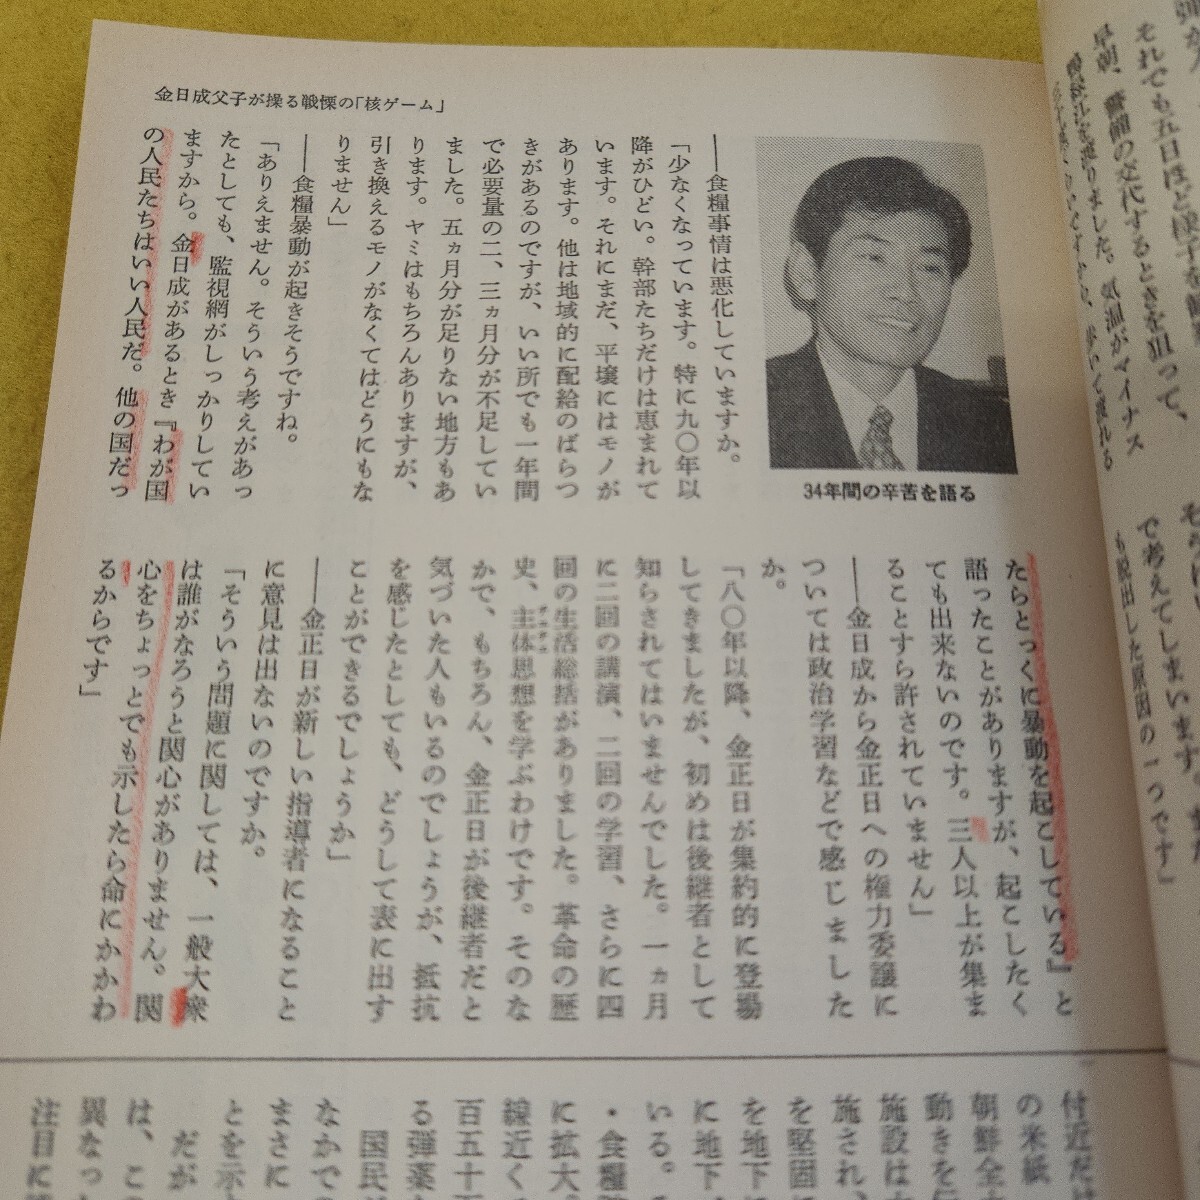 金日成父子が操る戦慄の「核ゲーム」
それでも五日ほど様子を
早朝、警備の交代するときを狙って、
りました。気温がマイナス
で考えてしまいます。
も脱出した原因の一つです」
34年間の辛苦を語る
――食糧事情は悪化していますか。
「少なくなっています。特に九〇年以
降がひどい。幹部たちだけは恵まれて
います。それにまだ、平壌にはモノが
あります。他は地域的に配給のばらつ
きがあるのですが、いい所でも一年間
で必要量の二、三ヵ月分が不足してい
ました。五ヵ月分が足りない地方もあ
ります。ヤミはもちろんありますが、
引き換えるモノがなくてはどうにもな
りません」
――食糧暴動が起きそうですね。
「ありえません。そういう考えがあっ
たとしても、監視網がしっかりしてい
ますから。金日成があるとき『わが国
の人民たちはいい人民だ。他の国だっ
たらとっくに暴動を起こしている』と
語ったことがありますが、起こしたく
ても出来ないのです。三人以上が集ま
ることすら許されていません」
――金日成から金正日への権力委譲に
ついては政治学習などで感じました
か。
「八〇年以降、金正日が集約的に登場
してきましたが、初めは後継者として
知らされてはいませんでした。一ヵ月
に二回の講演、二回の学習、さらに四
回の生活総括がありました。革命の歴
史、主体思想を学ぶわけです。そのな
かで、もちろん、金正日が後継者だと
気づいた人もいるのでしょうが、抵抗
を感じたとしても、どうして表に出す
ことができるでしょうか」
――金正日が新しい指導者になること
に意見は出ないのですか。
「そういう問題に関しては、一般大衆
は誰がなろうと関心がありません。関
心をちょっとでも示したら命にかかわ
るからです」
付近だ
の米紙
朝鮮全
動きを
施設は
施され、
を堅固
を地下
に地下
いる。
・食糧
に拡大。
線近く
百五十
る弾薬
国民
なかで
まさに
とを示
だが
は、こ
異なっ
注目に